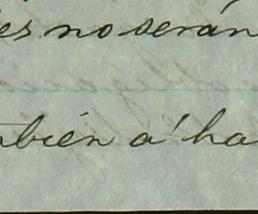 es no serán
mbién á ha